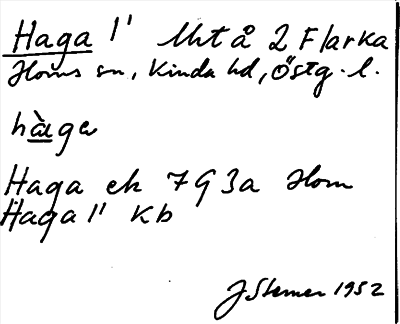 Haga 1' Utå 2 Flarka
Horns sn, Kinda hd, Östg. l.
hàga
Haga ek 7G3a Horn
Haga 1' Kb
J Sterner 1952